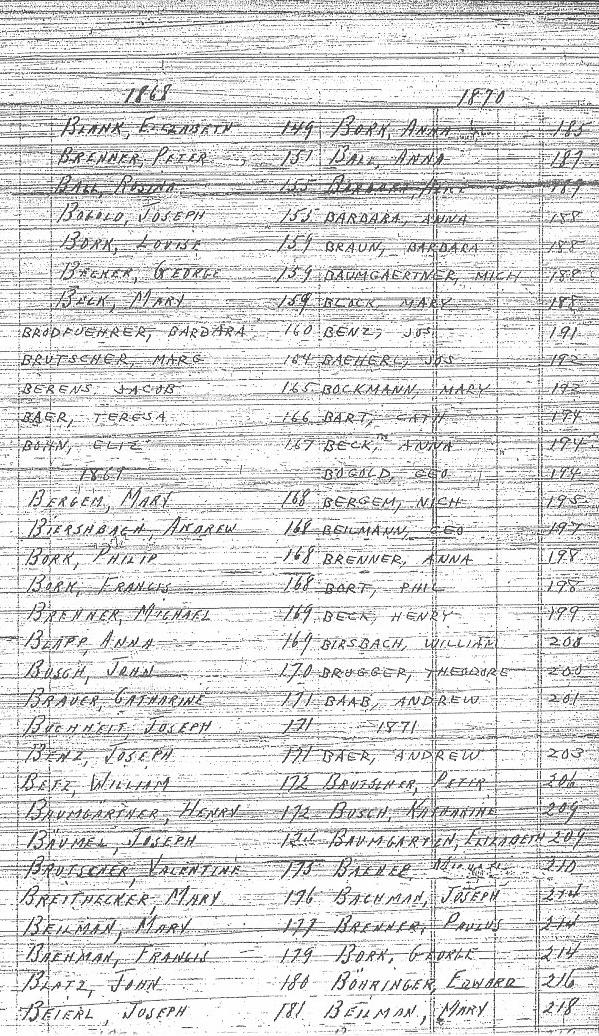 1868
BLANK, ELISABETH 149
BRENNER, PETER 151
BALL, ROSINA 155
BOGOLD, JOSEPH 155
BORK, LOUISE 159
BECKER, GEORGE 159
BELK, MARY 159
BRODFUEHRER, BARBARA 160
BRUTSCHER, MARG 164
BERENS, JACOB 165
BAER, TERESA 166
BOHN, ELIZ 167
1869
BERGEM, MARY 168
BIERSHBACH, ANDREW 168
BORK, PHILIP 168
BORK, FRANCIS 168
BRENNER, MICHAEL 169
BLAPP, ANNA 169
BUSCH, JOHN 170
BRAUER, CATHARINE 171
BUCHHEIT, JOSEPH 171
BENZ, JOSEPH 171
BETZ, WILLIAM 172
BAUMGÄRTNER, HENRY 172
BÄUMEL, JOSEPH
BRUTSCHER, VALENTINE 175
BREITHECKER, MARY 176
BEILMAN, MARY 177
BACHMAN, FRANCIS 179
BLATZ, JOHN 180
BEIERL, JOSEPH 181
1870
BORK, ANNA 185
BALL, ANNA 187
BARBARA, ANNA 188
BRAUN, BARBARA 188
BAUMGAERTNER, MICH 188
BLOCK, MARY 188
BENZ, JOS 191
BAEHERL, JOS 192
BOCKMANN, MARY 193
BART, CATH 194
BECK, ANNA 194
BOGOLD, GEO 194
BERGEM, NICH 195
BEILMANN, GEO 197
BRENNER, ANNA 198
BORT, PHIL 198
BECK, HENRY 199
BIRSBACH, WILLIAM 200
BRUGGER, THEODORE 200
BAAB, ANDREW 201
1871
BAER, ANDREW 203
BRUTSCHER, PETER 206
BUSCH, KATHARINE 209
BAUMGARTEN, ELIZABETH 209
BAEHER 210
BACHMAN, JOSEPH 214
BRENNER, PAULUS 214
BORK, GEORGE 214
BÖHRINGER, EDWARD 216
BEILMAN, MARY 218